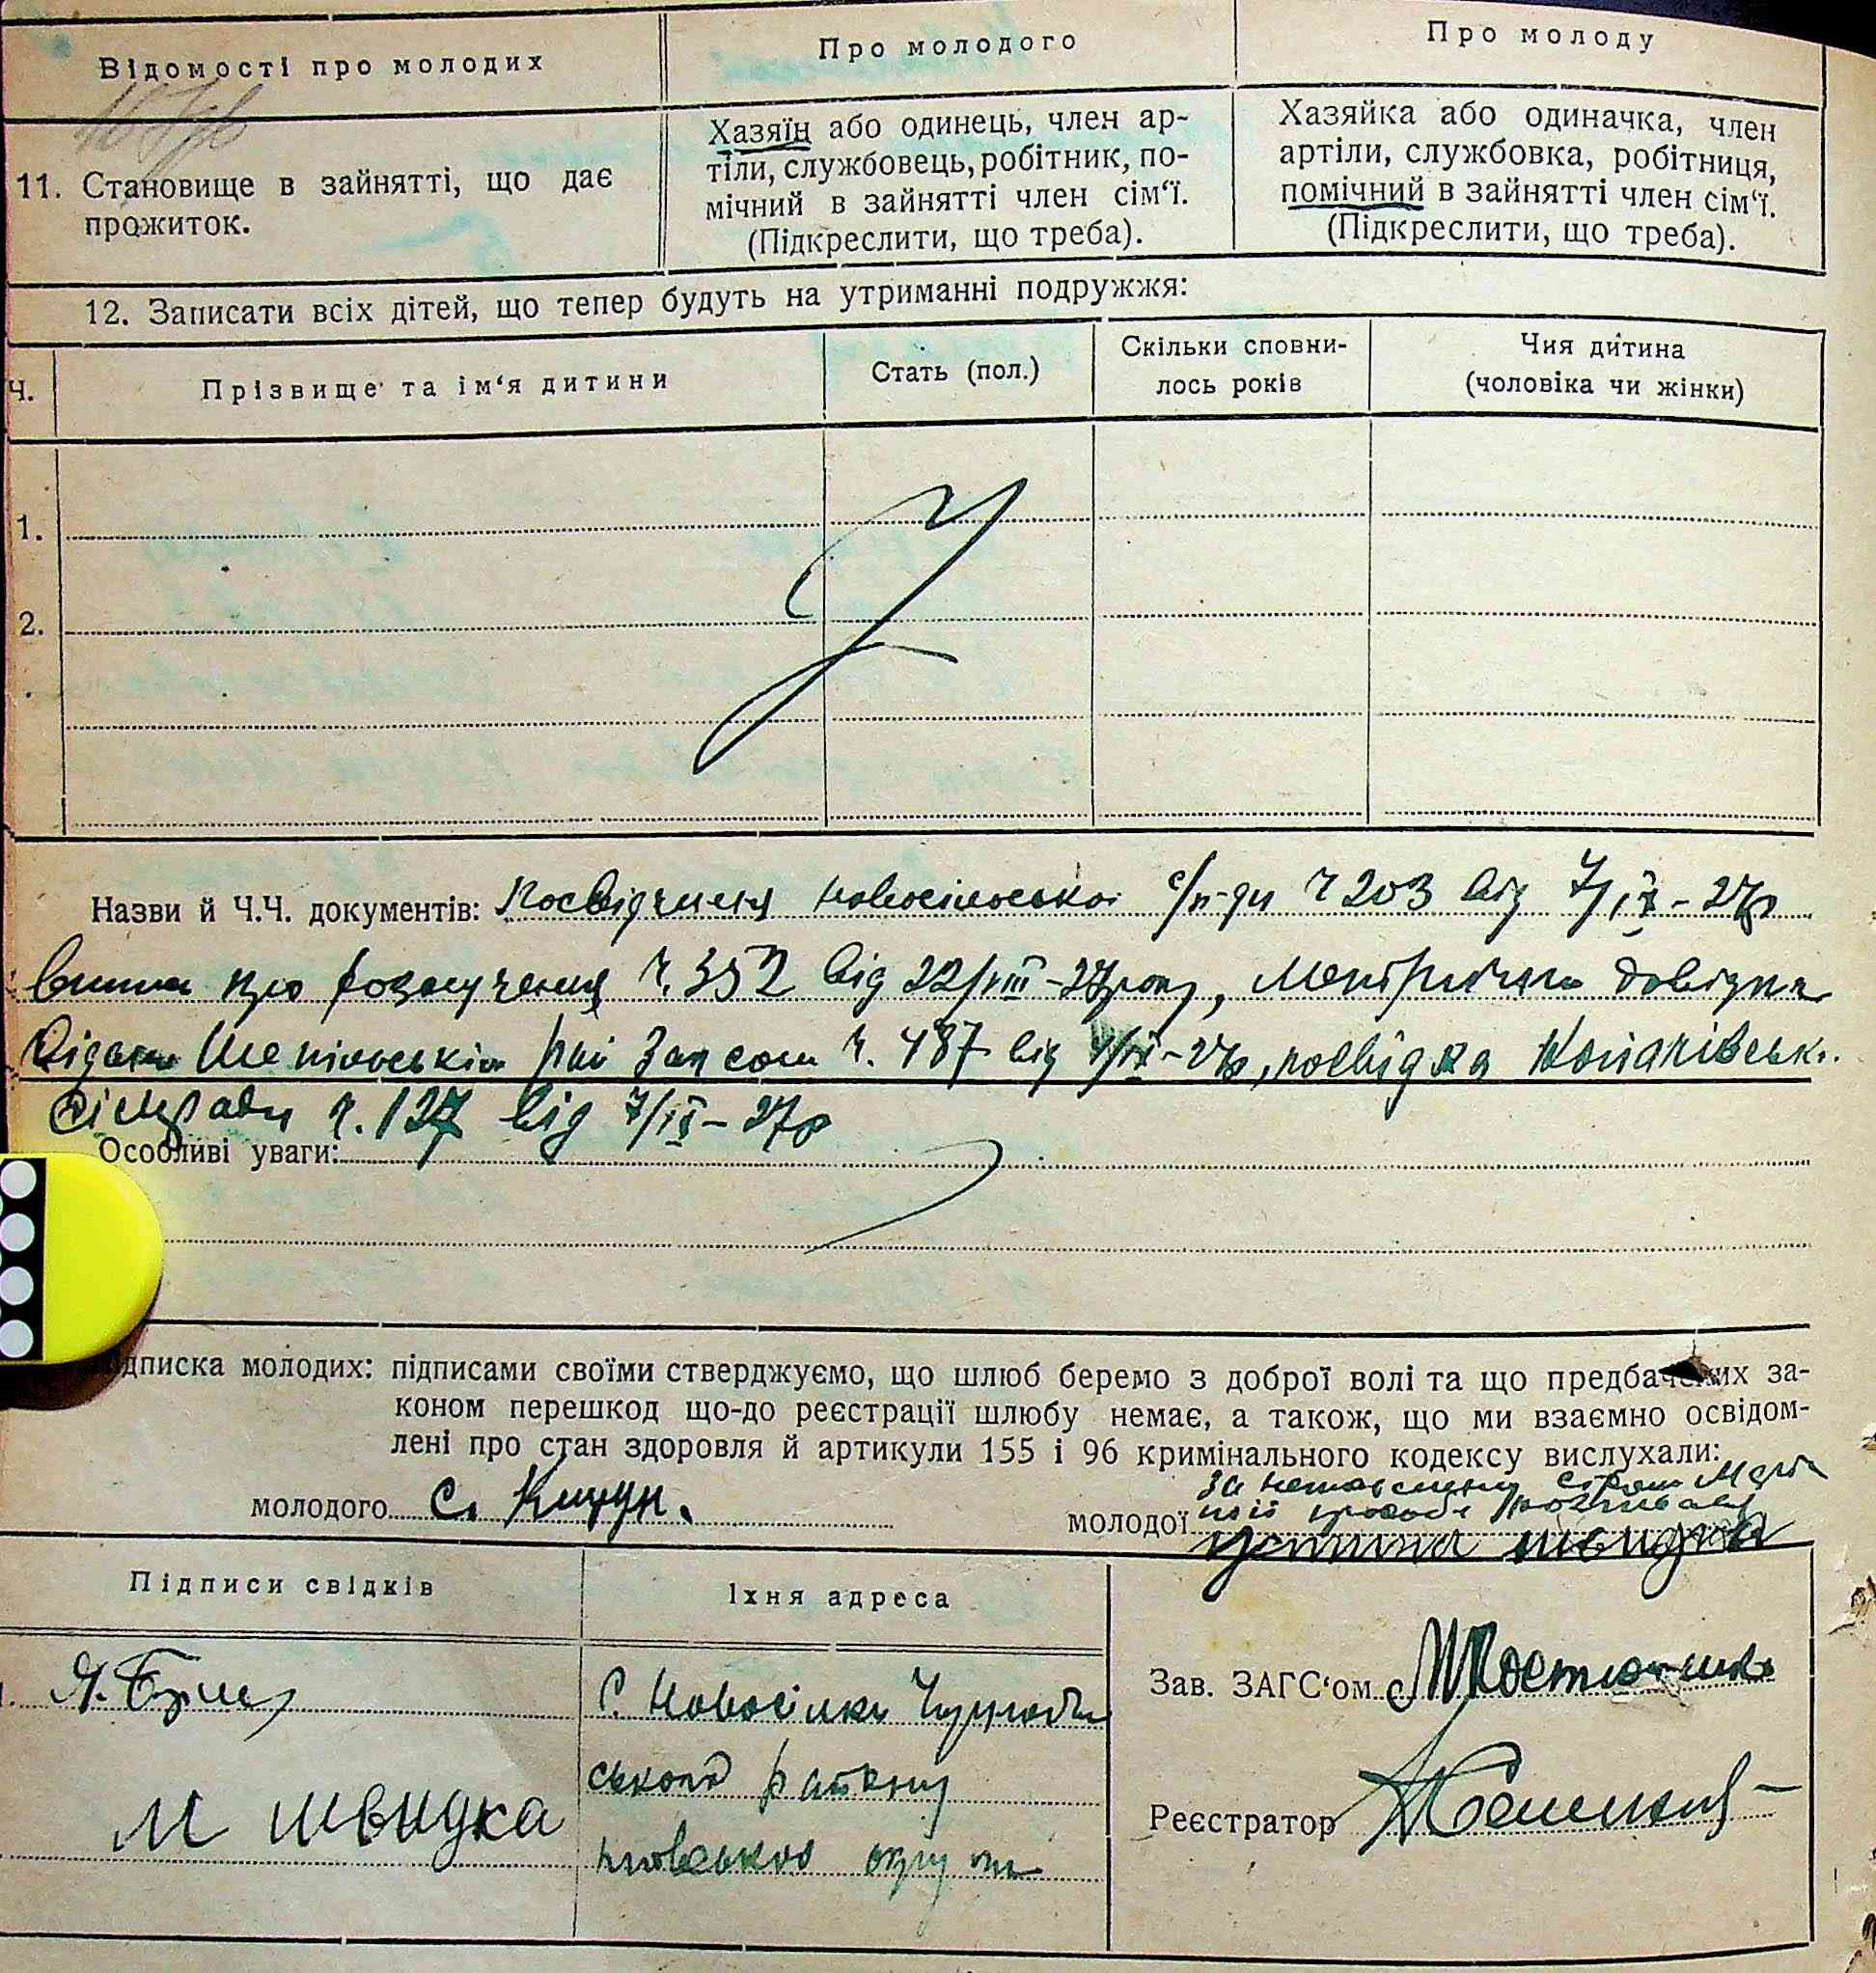 Відомості про молодих
Про молодого
Про молоду
11. Становище в зайнятті, що дає
прожиток.
Хазяїн або одинець, член ар-
тіли, службовець, робітник, по-
мічний в зайнятті член сім‘ї.
(Підкреслити, що треба).
Хазяйка або одиначка, член
артіли, службовка, робітниця,
помічний в зайнятті член сім‘ї.
(Підкреслити, що треба).
12. Записати всіх дітей, що тепер будуть на утриманні подружжя:
Ч.
Прізвище та ім‘я дитини
Стать (пол.)
Скільки сповни-
лось років
Чия дитина
(чоловіка чи жінки)
1.
2.
Назви й Ч.Ч. документів: Посвідчення Новосільської с/р-ди Ч 203 від 7/ІХ-27р
про розлучення Ч. 352 від 22/VIII-27року, Метрична довідка
рай Загсом Ч. 487 від /ІХ-27р, посвідка
сільради Ч. 127 від 7/ІХ-27р
Особливі уваги:
дписка молодих: підписами своїми стверджуємо, що шлюб беремо з доброї волі та що предбачених за-
коном перешкод що-до реєстрації шлюбу немає, а також, що ми взаємно освідом-
лені про стан здоровля й артикули 155 і 96 кримінального кодексу вислухали:
молодого С. Кицун.
За
молодої її просьбі розписалась
швидка
Підписи свідків
Їхня адреса
Я.
М швидка
С. Новосілки
ського району
округи
Зав. ЗАГС‘ом
Реєстратор